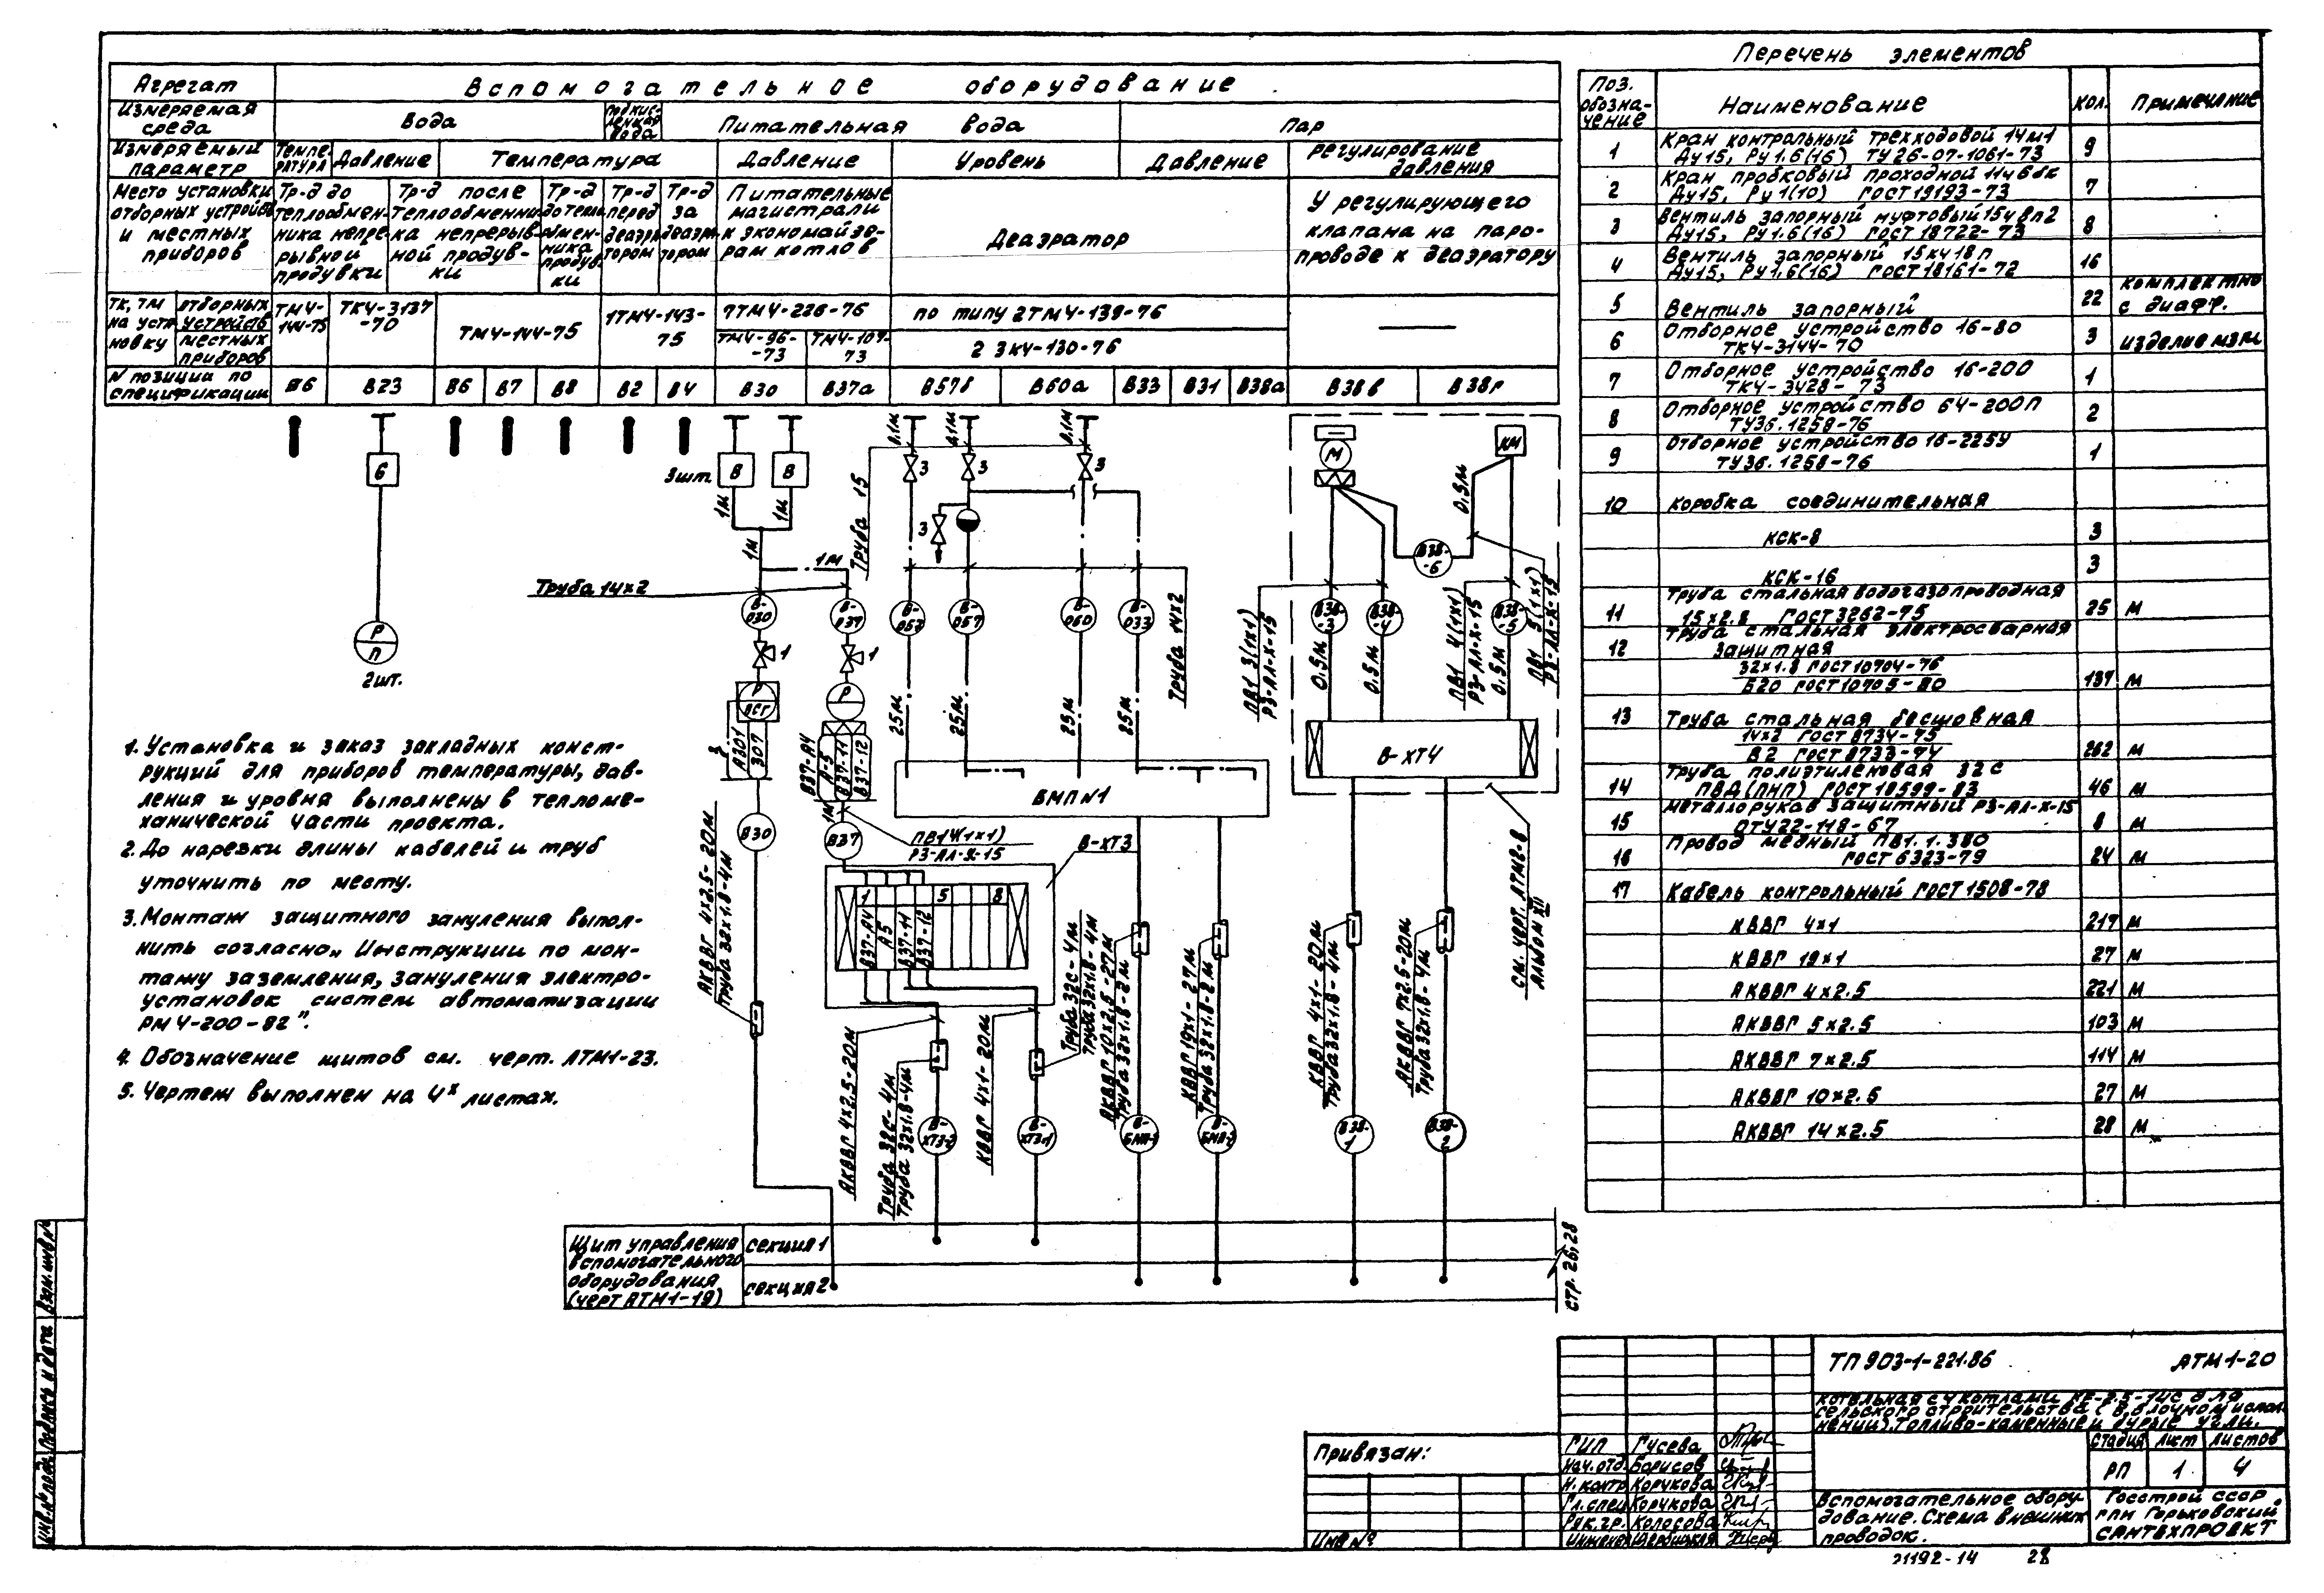 Перечень элементов
Агрегат
Вспомогательное оборудование
Измеряемая среда
Вода
Питательная вода
Пар
Измеряемый параметр
Темпе-
ратура
Давление
Температура
Давление
Уровень
Давление
Регулирование
давления
Место установки
отборных устройств
и местных
приборов
Тр-д до
теплообмен-
ника непре-
рывной
продувки
Тр-д после
теплообменни-
ка непрерыв-
ной продув-
ки
Тр-д
до тепло-
обмен-
ника
продув-
ки
Тр-д
перед
деаэра-
тором
Тр-д
за
деаэра-
тором
Питательные
магистрали
к экономайзе-
рам котлов
Деаэратор
У регулирующего
клапана на паро-
проводе к деаэратору
ТК, ТМ
на уста
новку
отборных
устройств
местных
приборов
ТМ4-
144-75
ТК4-3137
-70
ТМ4-144-75
1ТМ4-143-
75
7ТМ4-226-76
ТМ4-96-
-73
ТМ4-107-
73
по типу 2ТМ4-139-76
2 ЗК4-130-76
N позиции по
спецификации
В6 В23 В6 В7 В8 В2 В4 В30 В37а В57б В60а В33 В31 В38а В38в В38г
Поз.
обозна-
чение
Наименование
Кол.
Примечание
1 Кран контрольный трехходовой 14М1
Ду15, Ру1.6(16) ТУ26-07-1061-73 9
2 Кран пробковый проходной 11ч6бк
Ду15, Ру1(10) ГОСТ19193-73 7
3 Вентиль запорный муфтовый 15ч8п2
Ду15, Ру1.6(16) ГОСТ18722-73 8
4 Вентиль запорный 15кч18п
Ду15, Ру1.6(16) ГОСТ18161-72 16
5 Вентиль запорный 22 комплектно
с диафр.
6 Отборное устройство 16-80
ТК4-3144-70 3 изделие МЗМ
7 Отборное устройство 16-200
ТК4-3428-73 1
8 Отборное устройство 64-200П
ТУ36.1258-76 2
9 Отборное устройство 16-225У
ТУ36.1258-76 1
10 Коробка соединительная
КСК-8 3
КСК-16 3
11 Труба стальная водогазопроводная
15х2.8 ГОСТ3262-75 25 м
12 Труба стальная электросварная
защитная
32х1.8 ГОСТ10704-76
Б20 ГОСТ10705-80 137 м
13 Труба стальная бесшовная
14х2 ГОСТ8734-75
В2 ГОСТ8733-74 262 м
14 Труба полиэтиленовая 32С
ПВД(ПНП) ГОСТ18599-83 46 м
15 Металлорукав защитный РЗ-АЛ-Х-15
ОТУ22-118-67 8 м
16 Провод медный ПВ1.1.380
ГОСТ6323-79 24 м
17 Кабель контрольный ГОСТ1508-78
КВВГ 4х1 217 м
КВВГ 19х1 27 м
АКВВГ 4х2.5 221 м
АКВВГ 5х2.5 103 м
АКВВГ 7х2.5 114 м
АКВВГ 10х2.5 27 м
АКВВГ 14х2.5 28 м
6
Р
П
2шт.
3шт.
8 8
1м 1м
1м
1м
Труба 14х2
Труба 15
0.1м 0.1м 0.1м
3 3 3
3
В-
030
В-
037
В-
057
В-
057
В-
060
В-
033
1 1
Р
АСГ
Р
25м 25м 25м 25м
Труба 14х2
А301
307
В37-А4
А-5
В37-11
В37-12
1м
БМПN1
В30
В37
ПВ1 4(1х1)
РЗ-АЛ-Х-15
В-ХТ3
1 5 8
В37-А4
А5
В37-11
В37-12
М
КМ
0.5м
В38-
-6
В38-
-3
В38-
-4
В38-
-5
ПВ1 3(1х1)
РЗ-АЛ-Х-15
ПВ1 4(1х1)
РЗ-АЛ-Х-15
РЗ-АЛ-Х-15
0.5м 0.5м 0.5м
В-ХТ4
см. черт. АТМ2-8
Альбом XII
АКВВГ 4х2.5-20м
Труба 32х1.8-4м
АКВВГ 4х2.5-20м
Труба 32С-4м
Труба 32х1.8-4м
КВВГ 4х1-20м
Труба 32С-4м
Труба 32х1.8-4м
АКВВГ10х2.5-27м
Труба 32х1.8-2м
КВВГ19х1-27м
Труба 32х1.8-2м
КВВГ 4х1-20м
Труба 32х1.8-4м
АКВВГ 7х2.5-20м
Труба 32х1.8-4м
В-
ХТ3-2
В-
ХТ3-1
В-
БМП-1
В-
БМП-2
В38-
1
В38-
2
Щит управления
вспомогательного
оборудования
(черт АТМ1-19)
секция 1
секция 2
стр. 26,28
1. Установка и заказ закладных конст-
рукций для приборов температуры, дав-
ления и уровня выполнены в тепломе-
ханической части проекта.
2. До нарезки длины кабелей и труб
уточнить по месту.
3. Монтаж защитного зануления выпол-
нить согласно „Инструкции по мон-
тажу заземления, зануления электро-
установок систем автоматизации
РМ4-200-82".
4. Обозначение щитов см. черт. АТМ1-23.
5. Чертеж выполнен на 4х листах.
ТП 903-1-221.86 АТМ1-20
Котельная с 4 котлами КЕ-2.5-14С для
сельского строительства (в блочном испол-
нении). Топливо-каменные и бурые угли.
Стадия Лист Листов
РП 1 4
Вспомогательное обору-
дование. Схема внешних
проводок.
Госстрой СССР
ГПИ Горьковский
САНТЕХПРОЕКТ
Привязан:
Инв №
ГИП Гусева
Нач.отд. Борисов
Н.контр Корчкова
Гл.спец Корчкова
Рук.гр. Колосова
Инв.№ подл. Подпись и дата Взам.инв.№
21192-14 28